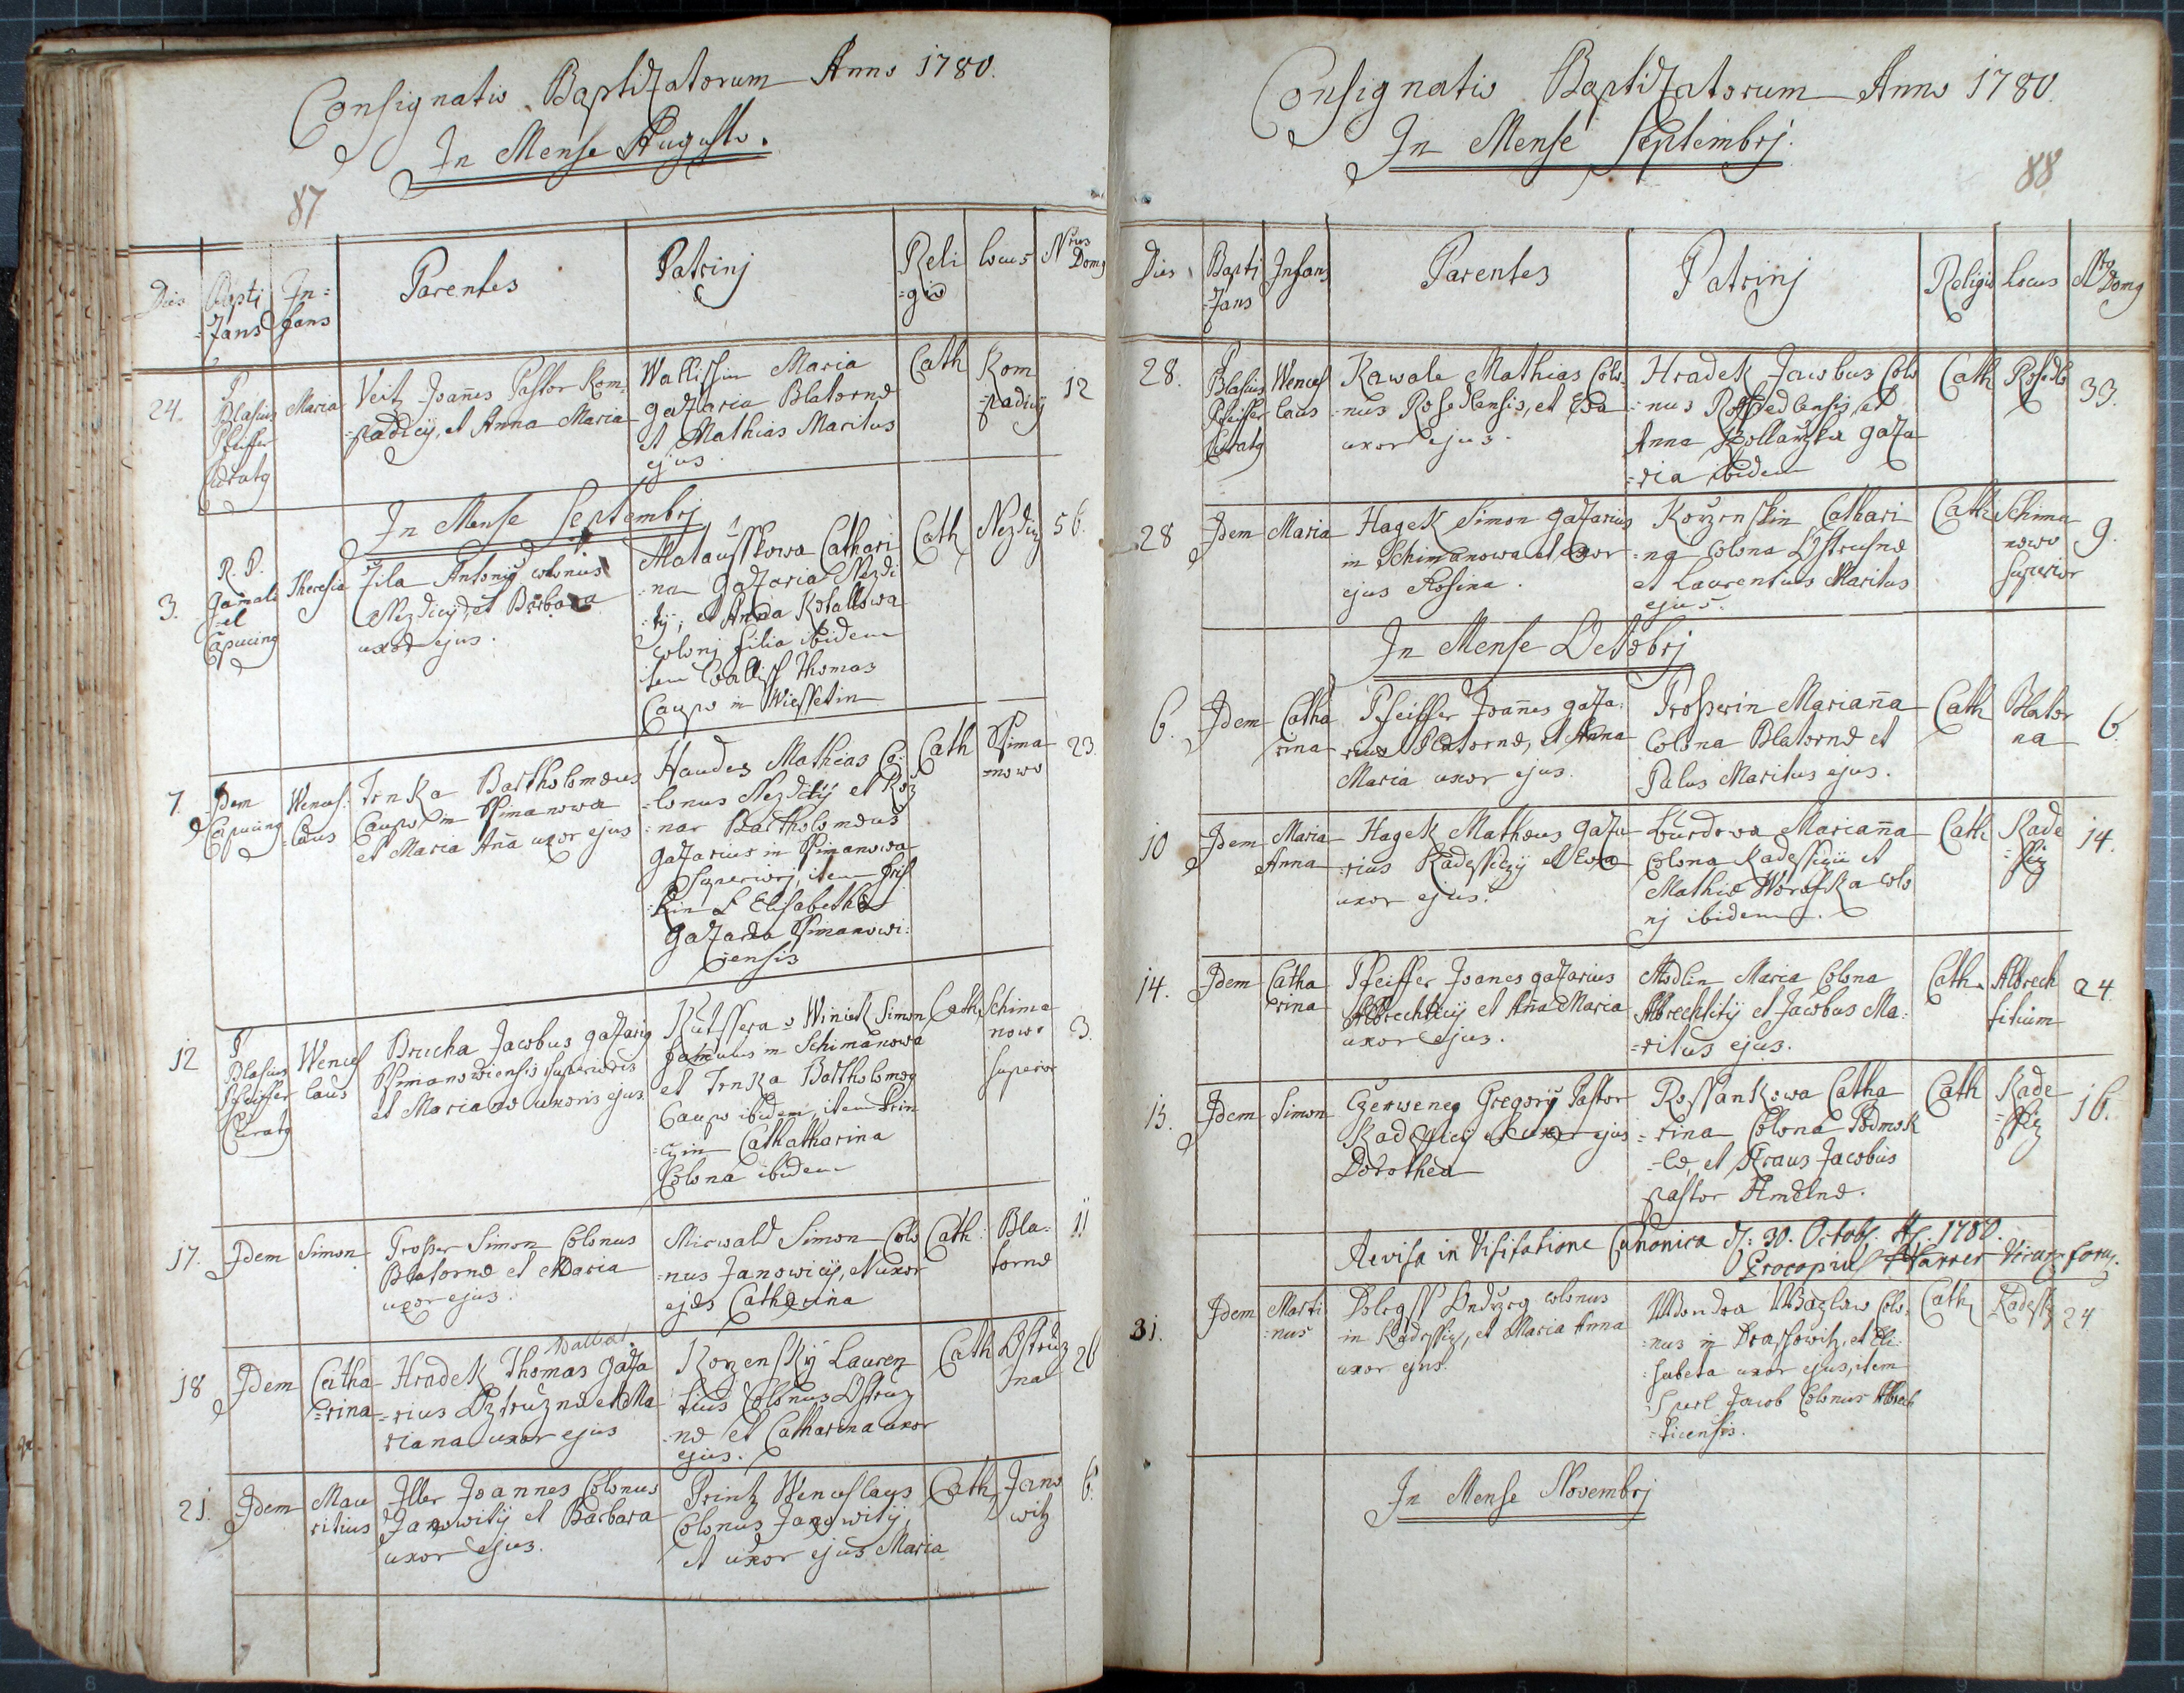 Consignatio Baptizatorum Anno 1780.
In Mense Augusto.
87
Dies
Bapti
=zans
In=
fans
Parentes
Patrinj
Reli
=gio
locus
Nrus
Domg
24.
P
Blasius
Pfeiffer
Curatg
Maria
Veit Joañes Pastor Kom=
=padicij, et Anna Maria
Wallissin Maria
gazaria Blatornæ
et Mathias Maritus
ejus
Cath
Kom
=padicij
12
In Mense Septembrj
3.
R. P.
gamali
=el
Capucing
Theresia
Zila Antonij colonus
Nezdicij, et Barbara
uxor ejus.
Mataußkowa Cathari
=na gazaria Nezdi
=tij, et Anna
colonj filia ibidem
item Walliss Thomas
Caupo in
Cath
Nezdiz
56.
7.
Idem
Capucing
Wences=
=laus
Trnka Bartholomæus
Caupo in Ssimanowa
et Maria Aña uxor ejus
Haudes Mathias Co=
=lonus Nezditij et Koz
=nar Bartholomæus
gazarius in Ssimanowa
Superiorj, item
Elisabetha
Ssimanowi=
=censis
Cath
Ssima
=nowo
23.
12
P
Blasius
Pfeiffer
Curatg
Wences
laus
Brucha Jacobus gazarig
Ssimanowiensis superioris
et Mariana uxoris ejus
Kutssera v Winick Simon
famulus in Schimanowa
et Trnka Bartholomeg
Caupo ibidem, item Prin
=czin Cathatharina
Colona ibidem
Cath
Schima
nowo
superior
3.
17.
Idem
Simon
Troßer Simon Colonus
Blatornæ et Maria
uxor ejus.
Mirwald Simon Colo
=nus Janowicij, et uxor
ejus Catherina
Cath.
Bla=
tornæ
11
18
Idem
Catha
=rina
Hradek Thomas gaza
=rius Oztruznæ et Ma
riana uxor ejus
Korzensky Lauren
tius Colonus Ostruz
=næ et Catharina uxor
ejus.
Cath
Ostruz
=na
26
21.
Idem
Mau
ritius
Iller Joannes Colonus
Janowitij et Barbara
uxor ejus.
Printz Wenceslaus
Colonus Janowitij
et uxor ejus Maria
Cath
Jano
witz
6.
Consignatio Baptizatorum Anno 1780.
In Mense Septembrj.
88
Dies
Bapti
=zans
Infans
Parentes
Patrinj
Religio
Locus
Nrs
Domg
28.
P
Blasius
Pfeiffer
Curatg
Wences
laus
Kawale Mathias Colo=
=nus Rosedlensis, et Eva
uxor ejus.
Hradek Jacobus Colo
=nus Rossedlensis, et
Anna gaza
=ria ibidem
Cath
Rosedlo
33.
28
Idem
Maria
Hagek Simon gazarius
in Schimanowa et uxor
ejus Rosina.
Korzenskin Cathari
=na Colona Ostrusnæ
et Laurentius Maritus
ejus.
Cath
Schima
nowo
superior
9.
In Mense Octobrj
6.
Idem
Catha
rina
Pfeiffer Joañes gaza=
rius Blatornæ, et Anna
Maria uxor ejus.
Troßerin Mariaña
Colona Blatornæ et
Palus Maritus ejus.
Cath
Blator
na
6.
10
Idem
Maria
Anna
Hagek Mathæus gaza
=rius Radessiczij et Eva
uxor ejus.
Burdowa Mariaña
Colona Radessiczii et
Mathiæ Worsska colo
nj ibidem.
Cath
Rade
=ssiz
14.
14.
Idem
Catha
rina
Pfeiffer Joanes gazarius
Albrechticij et Aña Maria
uxor ejus.
Modlin Maria Colona
Albrechtitij et Jacobus Ma=
=ritus ejus.
Cath.
Albrech
titium
24.
15.
Idem
Simon
Czerweneg Gregorij Pastor
et uxor ejus
Dorothea
Rossankowa Catha
=rina Colona Podmok
=læ, et Kraus Jacobus
pastor
Cath
Rade
=ssiz
16.
Revisa in Visitatione Canonica d. 30. Octobr. 1780.
Procopius Vicarg foraneg.
31.
Idem
Marti
=nus
Dolegss Ondrzeg colonus
in Radessiz, et Maria Anna
uxor ejus.
Wondra Wazlaw Colo=
nus in Drassowitz, et Eli
=sabeta uxor ejus, item
Sperl Jacob Colonus Albrech
=ticensis.
Cath
Radessiz
24
In Mense Novembrj